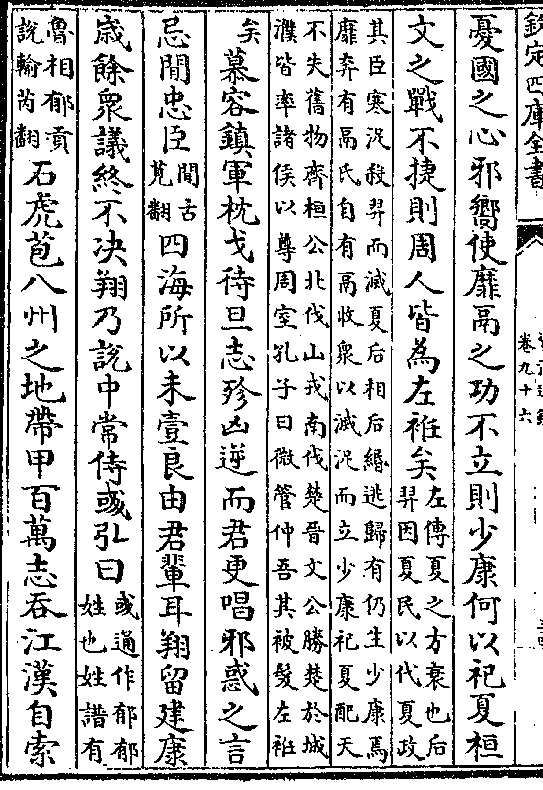 欽定四庫全書
卷九十六
憂國之心邪嚮使靡鬲之功不立則少康何以祀夏桓
文之戰不捷則周人皆為左袵矣
左傳夏之方衰也后
羿因夏民以代夏政
其臣寒浞殺羿而滅夏后相后緡逃歸有仍生少康焉
靡奔有鬲氏自有鬲收衆以滅浞而立少康祀夏配天
不失舊物齊桓公北伐山戎南伐楚晉文公勝楚於城
濮皆率諸侯以尊周室孔子曰微管仲吾其被髮左袵
矣
慕容鎮軍枕戈待旦志殄凶逆而君更唱邪惑之言
忌間忠臣
間古
莧翻
四海所以未壹良由君輩耳翔留建康
歲餘衆議終不决翔乃說中常侍彧弘曰
彧通作郁郁
姓也姓譜有
魯相郁貢
說輸芮翻
石虎苞八州之地帶甲百萬志吞江漢自索